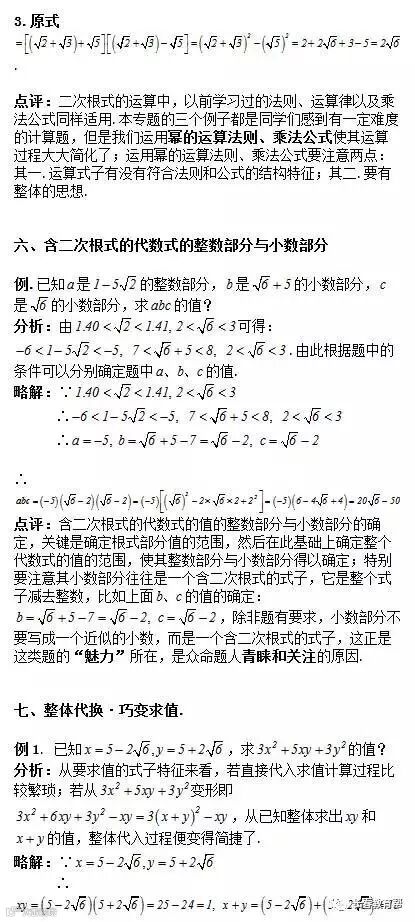 3. 原式
=[(√2+√3)+√5][(√2+√3)-√5]=(√2+√3)²-(√5)²=2+2√6+3-5=2√6
.
点评：二次根式的运算中，以前学习过的法则、运算律以及乘
法公式同样适用. 本专题的三个例子都是同学们感到有一定难度
的计算题，但是我们运用幂的运算法则、乘法公式使其运算
过程大大简化了；运用幂的运算法则、乘法公式要注意两点：
其一. 运算式子有没有符合法则和公式的结构特征；其二. 要有
整体的思想.
六、含二次根式的代数式的整数部分与小数部分
例. 已知a是1-5√2的整数部分，b是√6+5的小数部分，c
是√6的小数部分，求abc的值？
分析：由1.40<√2<1.41, 2<√6<3可得：
-6<1-5√2<-5, 7<√6+5<8, 2<√6<3. 由此根据题中的
条件可以分别确定题中a、b、c的值.
略解：∵1.40<√2<1.41, 2<√6<3
∴-6<1-5√2<-5, 7<√6+5<8, 2<√6<3
∴a=-5, b=√6+5-7=√6-2, c=√6-2
∴
abc=(-5)(√6-2)(√6-2)=(-5)[(√6)²-2×√6×2+2²]=(-5)(6-4√6+4)=20√6-50
点评：含二次根式的代数式的值的整数部分与小数部分的确
定，关键是确定根式部分值的范围，然后在此基础上确定整个
代数式的值的范围，使其整数部分与小数部分得以确定；特别
要注意其小数部分往往是一个含二次根式的式子，它是整个式
子减去整数，比如上面b、c的值的确定：
b=√6+5-7=√6-2, c=√6-2，除非题有要求，小数部分不
要写成一个近似的小数，而是一个含二次根式的式子，这正是
这类题的“魅力”所在，是众命题人青睐和关注的原因.
七、整体代换·巧变求值.
例1. 已知x=5-2√6,y=5+2√6，求3x²+5xy+3y²的值？
分析：从要求值的式子特征来看，若直接代入求值计算过程比
较繁琐；若从3x²+5xy+3y²变形即
3x²+6xy+3y²-xy=3(x+y)²-xy，从已知整体求出xy和
x+y的值，整体代入过程便变得简捷了.
略解：∵x=5-2√6,y=5+2√6
∴
xy=(5-2√6)(5+2√6)=25-24=1, x+y=(5-2√6)+(5